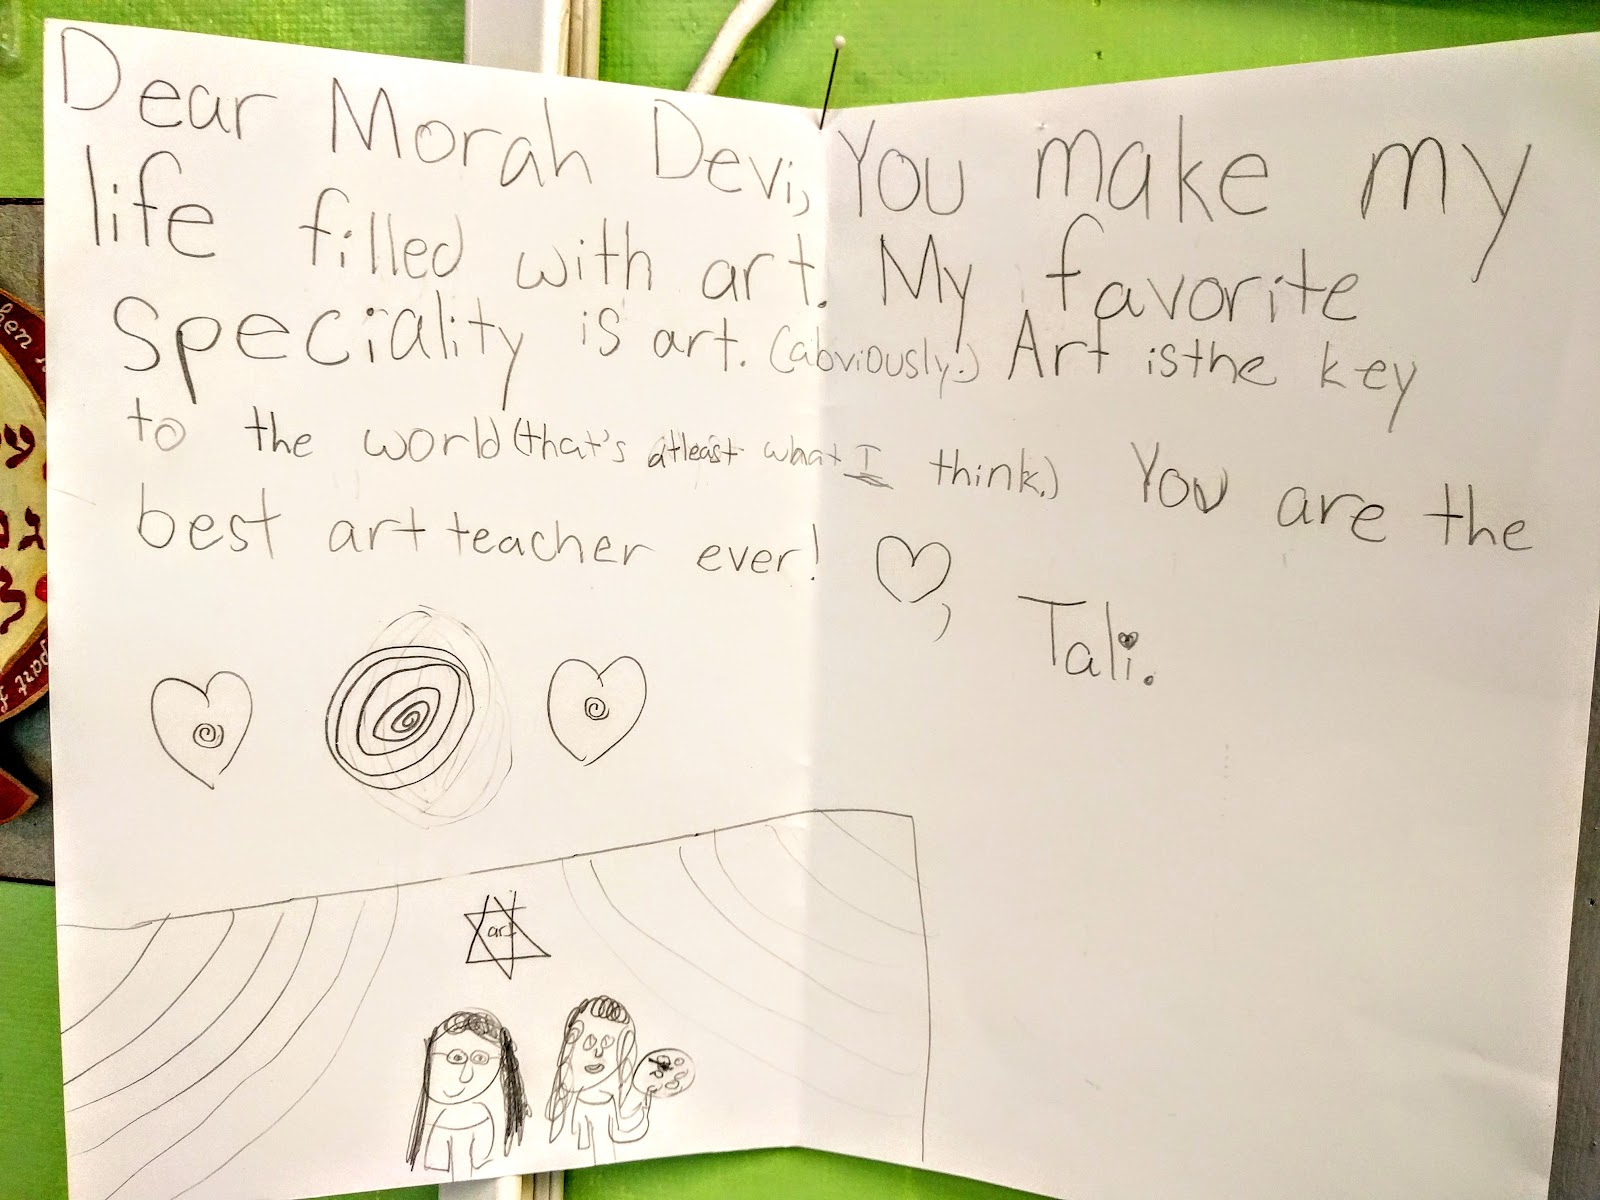 Dear Morah Devi, You make my
life filled with art. My favorite
speciality is art. (abviously!) Art is the key
to the world (that's atleast what I think.) You are the
best art teacher ever! ♡,
Tali.
art